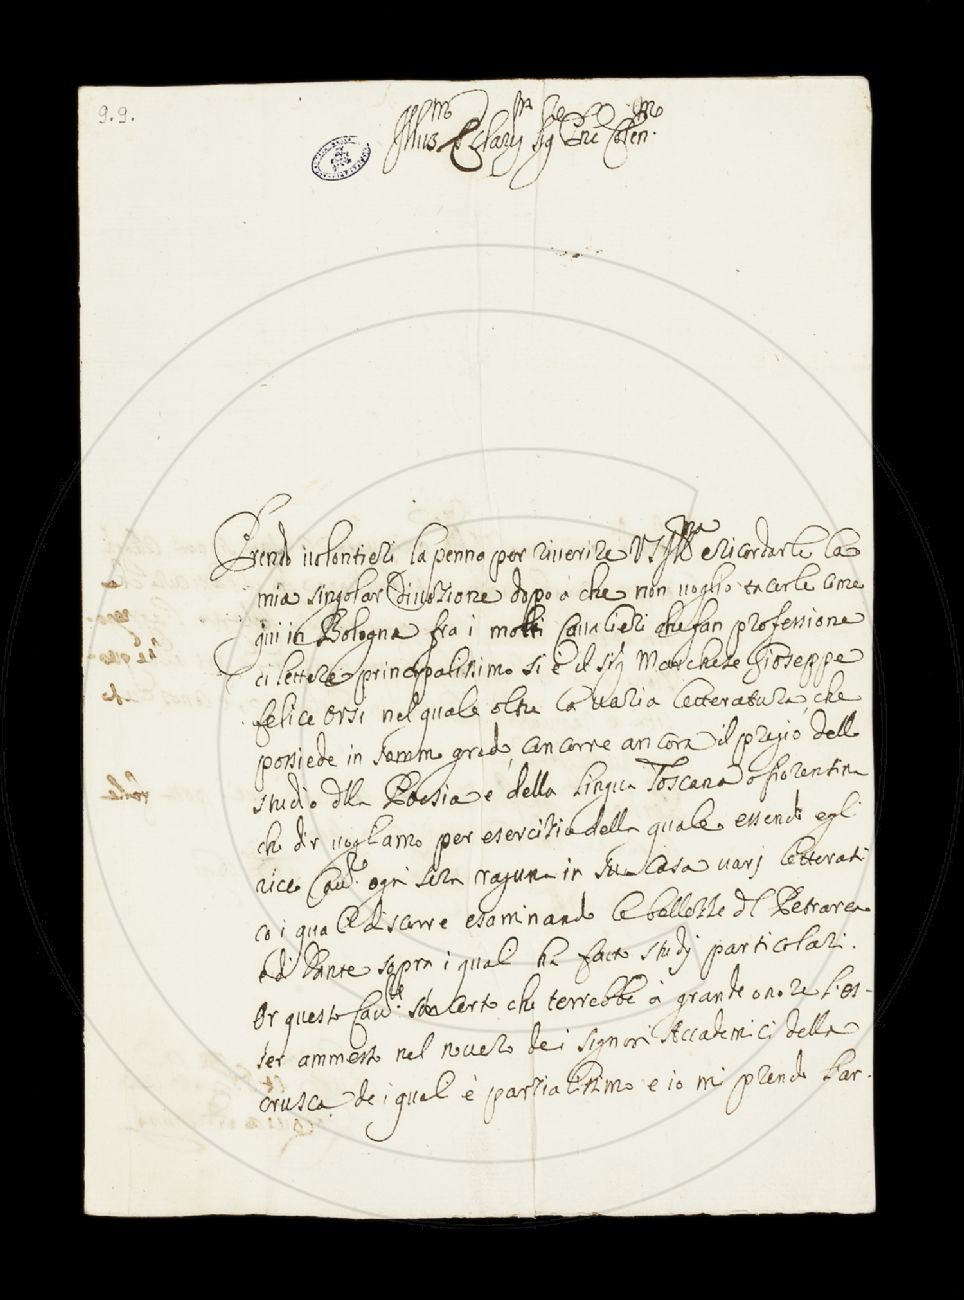 9.9.
Illus.mo e Clar.mo Sig.re Pne Colen.mo
Prendo volontieri la penna per riverire V S Ill.ma e ricordarle la
mia singolar divozione dopo di che non voglio tacerle come
qui in Bologna fra i molti Cavalieri che fan professione
di lettere principalissimo si è il Sig.r Marchese Gioseppe
felice Orsi nel quale oltre la varia letteratura, che
possiede in sommo grado, concorre ancora il pregio dello
studio della Poesia e della lingua Toscana o fiorentina
che dir vogliamo per esercitio della quale essendo egli
ricco Cav.re ogni sera raguna in sua Casa varj letterati
co i quali discorre esaminando le bellezze del Petrarca
e di Dante sopra i quali ha fatto studj particolari.
Or questo Cav.re son certo che terrebbe à grande onore l'es-
ser ammesso nel novero dei Signori Accademici della
Crusca de i quali è parzialissimo e io mi prendo l'ar-